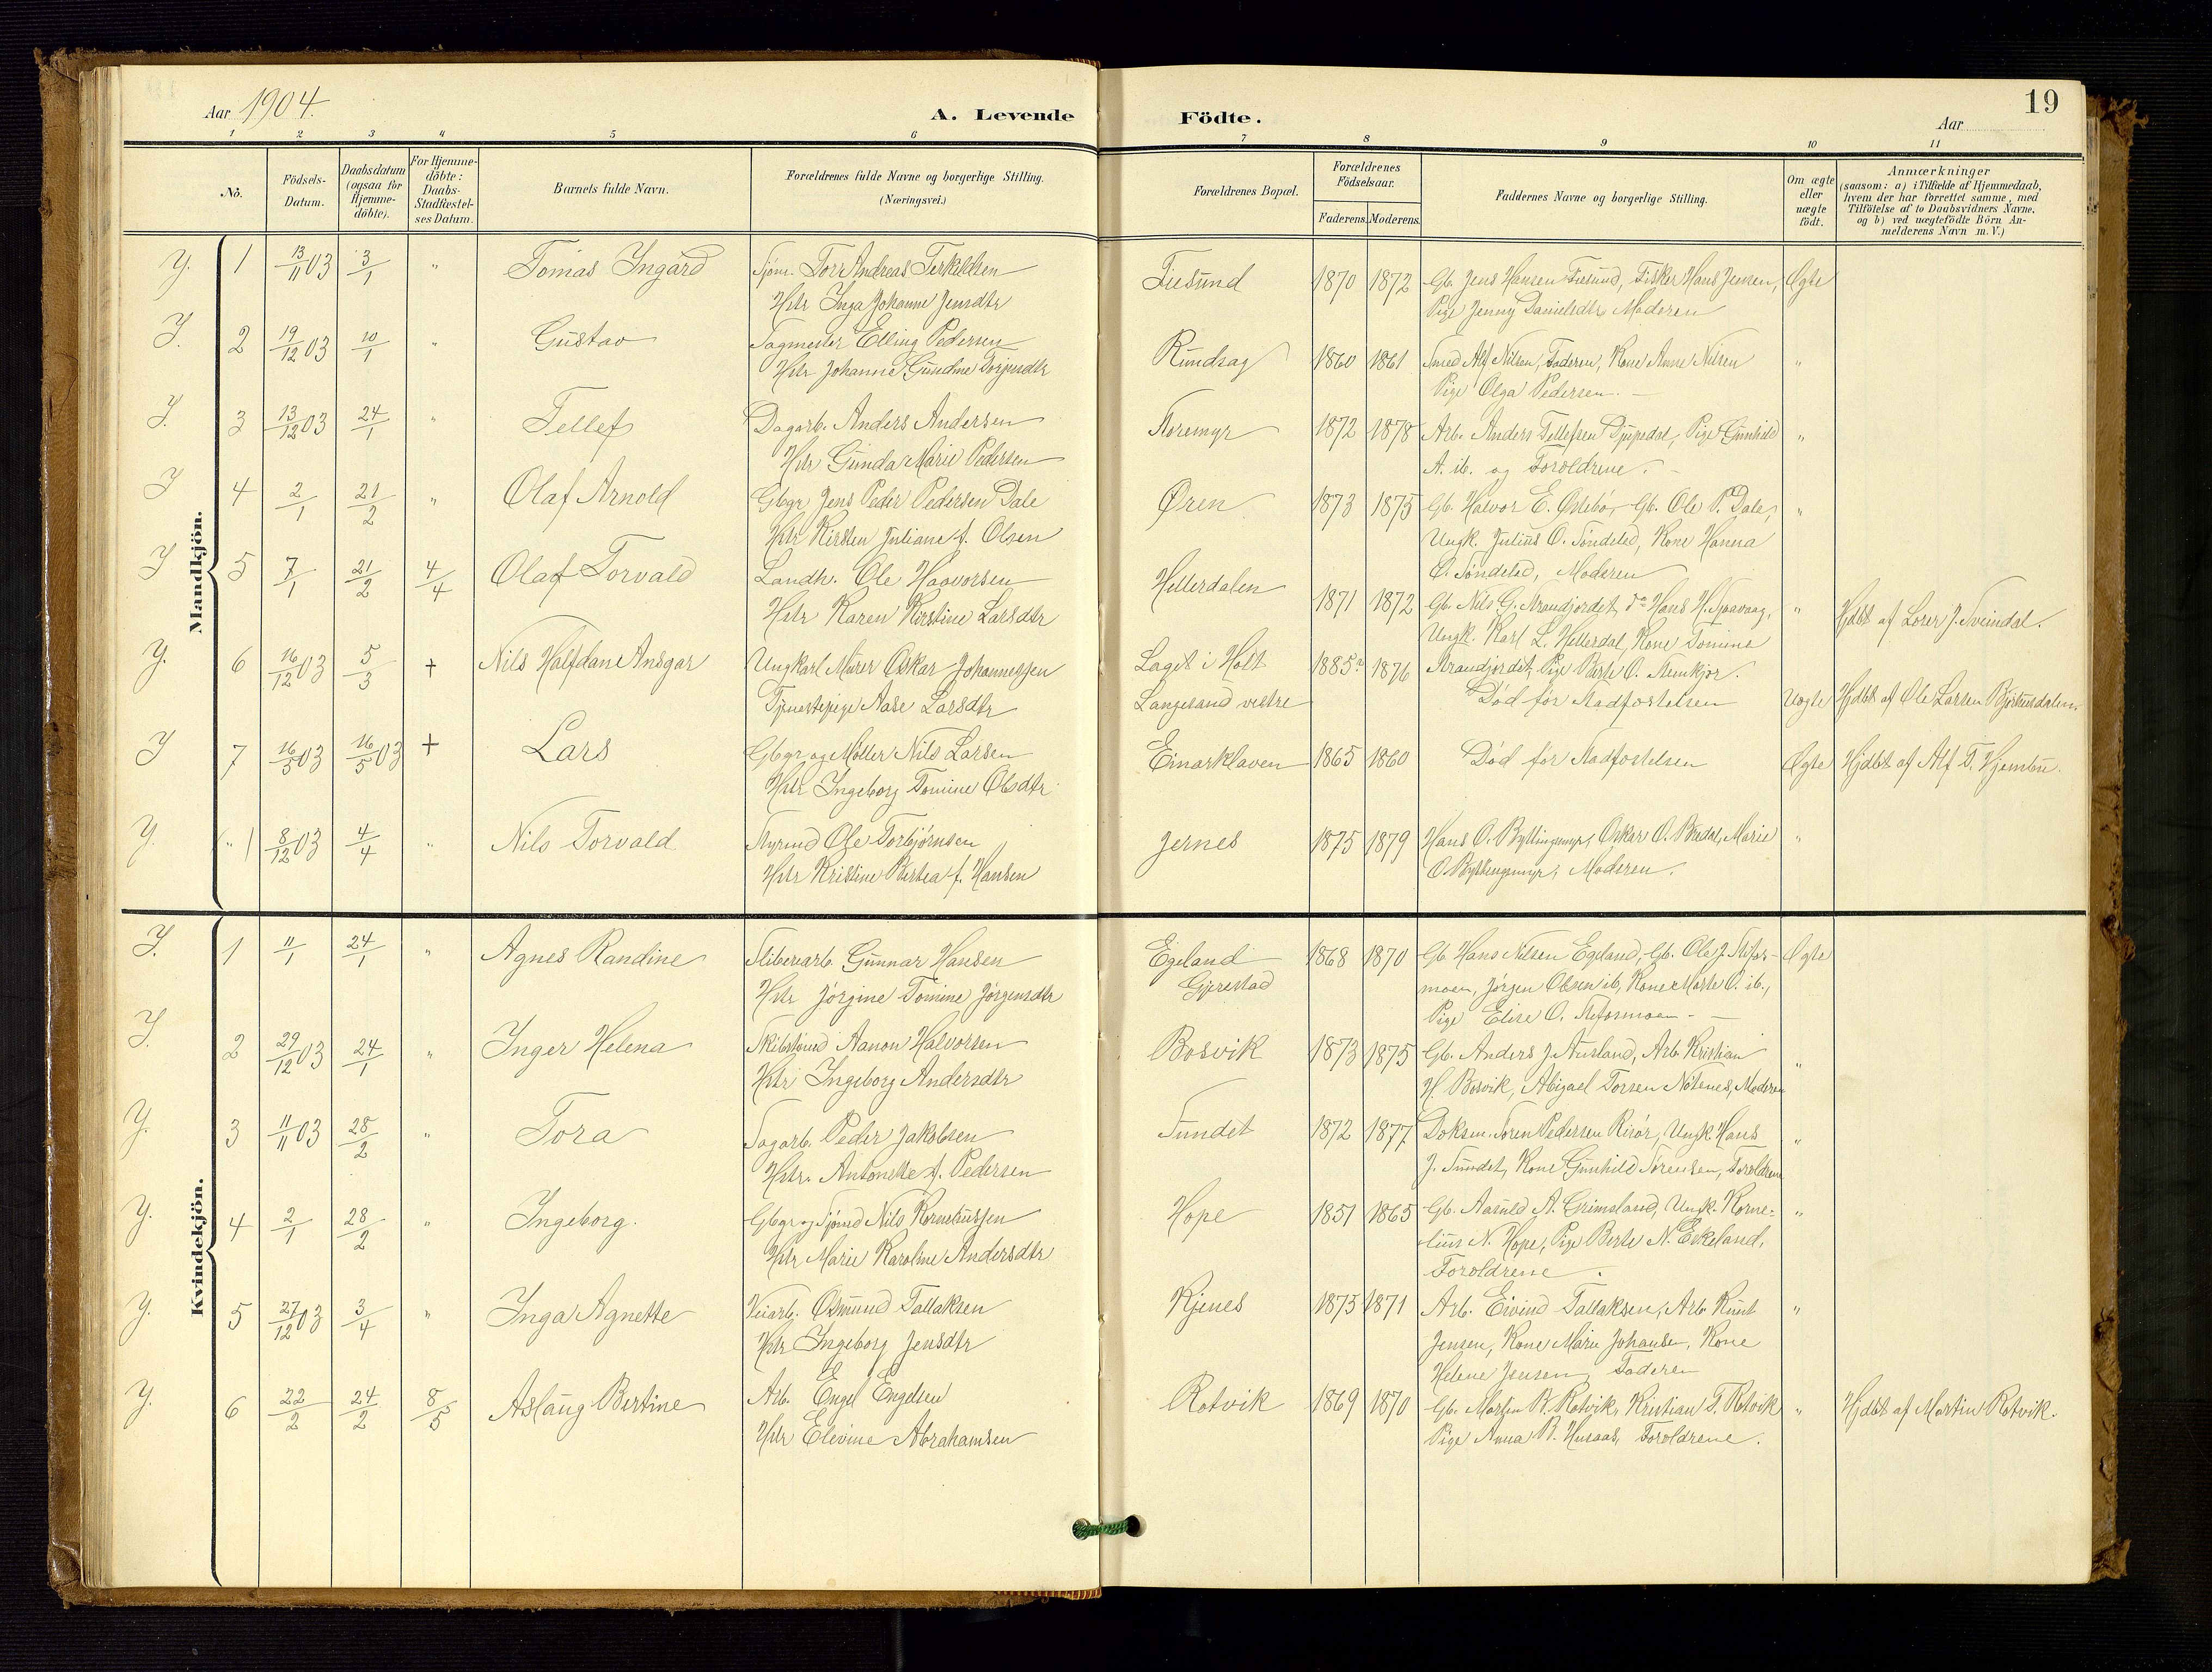 Aar 1904.
A. Levende Födte.
19
Aar
1 2 3 4 5 6 7 8 9 10 11
No.
Födsels-Datum.
Daabsdatum (ogsaa for Hjemme-döbte).
For Hjemme-döbte: Daabs-Stadfæstel-ses Datum.
Barnets fulde Navn.
Forældrenes fulde Navne og borgerlige Stilling. (Næringsvei.)
Forældrenes Bopæl.
Forældrenes Födselsaar.
Faderens. Moderens.
Faddernes Navne og borgerlige Stilling.
Om ægte eller uægte födt.
Anmærkninger
(saasom: a) i Tilfælde af Hjemmedaab,
hvem der har forrettet samme, med
Tilföielse af to Daabsvidners Navne.
og b) ved uægtefödte Börn An-
melderens Navn m. V.)
Mandkjön.
Y. 1 13/11 03 3/1 " Tomas Ingard Sjöm. Tor Andreas Terkildsen Fiesund 1870 1872 Gb. Jens Hansen Fiesund, Fisker Hans Jensen, Ægte
Hstr Inga Johanne Jensdtr Pige Jenny Danielsdtr, Moderen
Y. 2 19/12 03 10/1 " Gustav Sagmester Elling Pedersen Rundsag 1860 1861 Smed Alf Nilsen, Faderen, Kone Anne Nilsen "
Hstr Johanne Gusdine Torjusdtr Pige Olga Pedersen.
Y. 3 13/12 03 24/1 " Tellef Dagarb. Anders Andersen Noremyr 1872 1878 Arb. Anders Tellefsen Djupedal, Pige Gunhild "
Hstr Gunda Marie Pedersen A. ib. og Foroldrene.
Y 4 2/1 21/2 " Olaf Arnold Gbgr Jens Peder Pedersen Dale Øren 1873 1875 Gb. Halvor E. Østebö, Gb. Ole P. Dale, "
Hstr Kirsten Juliane f. Olsen Ungk. Julius O. Söndeled, Kone Hanna
O. Söndeled, Moderen
Y 5 7/1 21/2 4/4 Olaf Torvald Landh. Ole Haavorsen Hellerdalen 1871 1872 Gb. Nils G. Strandjordet, do Hans H. Sjaavaag, " Hjdbt af Lærer J. Sveindal.
Hstr Karen Kirstine Larsdtr Ungk. Karl L. Hellerdal, Kone Tomine
Strandjordet, Pige Berte O.
Y. 6 16/12 03 5/3 + Nils Halfdan Ansgar Ungkarl Murer Oskar Johannessen Laget i Holt 1885? 1876
Tjenestepige Aase Larsdtr Langesand vestre Död för Stadfæstelsen Uægte Hjdbt af Ole Larsen
Y 7 16/5 03 16/5 03 + Lars Gbgr og Möller Nils Larsen Einarklaven 1865 1860 Död för Stadfæstelsen Ægte Hjdbt af Alf T. Hjembu.
Hstr Ingeborg Tomine Olsdtr
Y. 8/12 03 4/4 " Nils Torvald Styrmd Ole Torbjörnsen Jernes 1875 1879 Hans O. Byttingsmyr, Oskar O. Bredal, Marie "
Hstr Kristine Bertea f. Hansen O. Byttingsmyr, Moderen.
Kvindekjön.
Y. 1 11/1 24/1 " Agnes Randine Sliberiarb. Gunnar Hansen Egeland 1868 1870 Gb. Hans Nilsen Egeland, Gb. Ole J. Stifos- Ægte
Hstr Jörgine Tomine Jörgensdtr Gjerestad moen, Jörgen Olsen ib, Kone Marte O. ib.,
Pige Elise O. Stifosmoen
Y. 2 29/12 03 24/1 " Inger Helena Skibstömd Aanon Halvorsen Bosvik 1873 1875 Gb. Anders J. Ausland, Arb. Kristian "
Hstr Ingeborg Andersdtr H. Bosvik, Abigael Torsen Nötenes, Moderen
Y. 3 11/11 03 28/2 " Tora Sagarb. Peder Jakobsen Sundet 1872 1877 Doksm. Sören Pedersen Risör, Ungk. Hans "
Hstr. Antonette f. Pedersen J. Sundet, Kone Gunhild Sörensen, Foroldrene
Y. 4 2/1 28/2 " Ingeborg. Gbgr og Sjömd Nils Korneliussen Hope 1851 1865 Gb. Aasuld A. Grimsland, Ungk. Korne- "
Hstr Marie Karoline Andersdtr lius N. Hope, Pige Berte N. Eskeland,
Foroldrene.
Y. 5 27/12 03 3/4 " Inga Agnette Veiarb. Osmund Tallaksen Kjenes 1875 1871 Arb. Eivind Tallaksen, Arb. Knut "
Hstr Ingeborg Jensdtr Jensen, Kone Marie Johansen, Kone
Helene Jensen, Faderen
Y. 6 22/2 24/2 8/5 Aslaug Bertine Arb. Engel Engelsen Rotvik 1869 1870 Gb. Martin B. Rotvik, Kristian T. Rotvik " Hjdbt af Martin Rotvik.
Hstr Elevine Abrahamsen Pige Anna B. Husaas, Foroldrene.